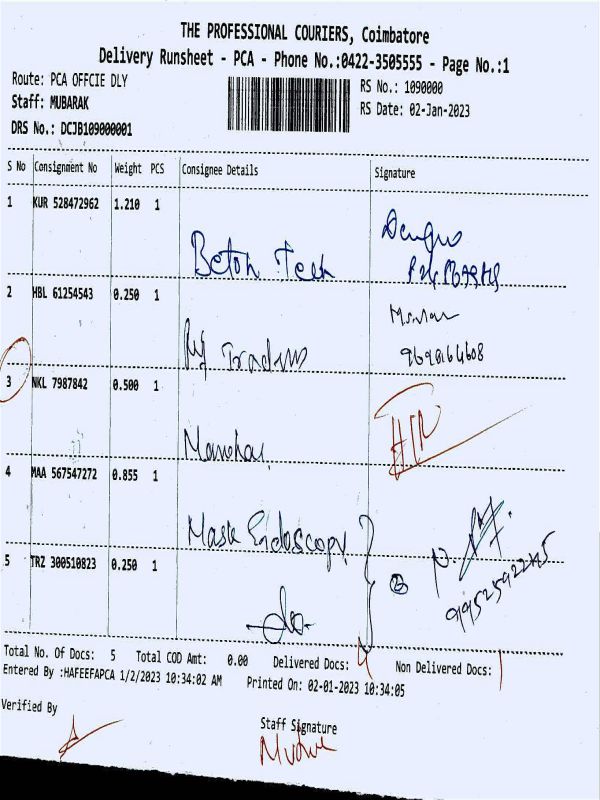 THE PROFESSIONAL COURIERS, Coimbatore
Delivery Runsheet - PCA - Phone No.:0422-3505555 - Page No.:1
Route: PCA OFFCIE DLY
RS No.: 1090000
Staff: MUBARAK
RS Date: 02-Jan-2023
DRS No.: DCJB109000001
S No Consignment No Weight PCS Consignee Details Signature
1 KUR 528472962 1.210 1
Beton Tech
2 HBL 61254543 0.250 1
Traders
3 NKL 7987842 0.500 1
Manohar
4 MAA 567547272 0.855 1
Mask Endoscopy
5 TRZ 300510823 0.250 1
-do-
Total No. Of Docs: 5 Total COD Amt: 0.00 Delivered Docs: 4 Non Delivered Docs: 1
Entered By :HAFEEFAPCA 1/2/2023 10:34:02 AM Printed On: 02-01-2023 10:34:05
Verified By
Staff Signature